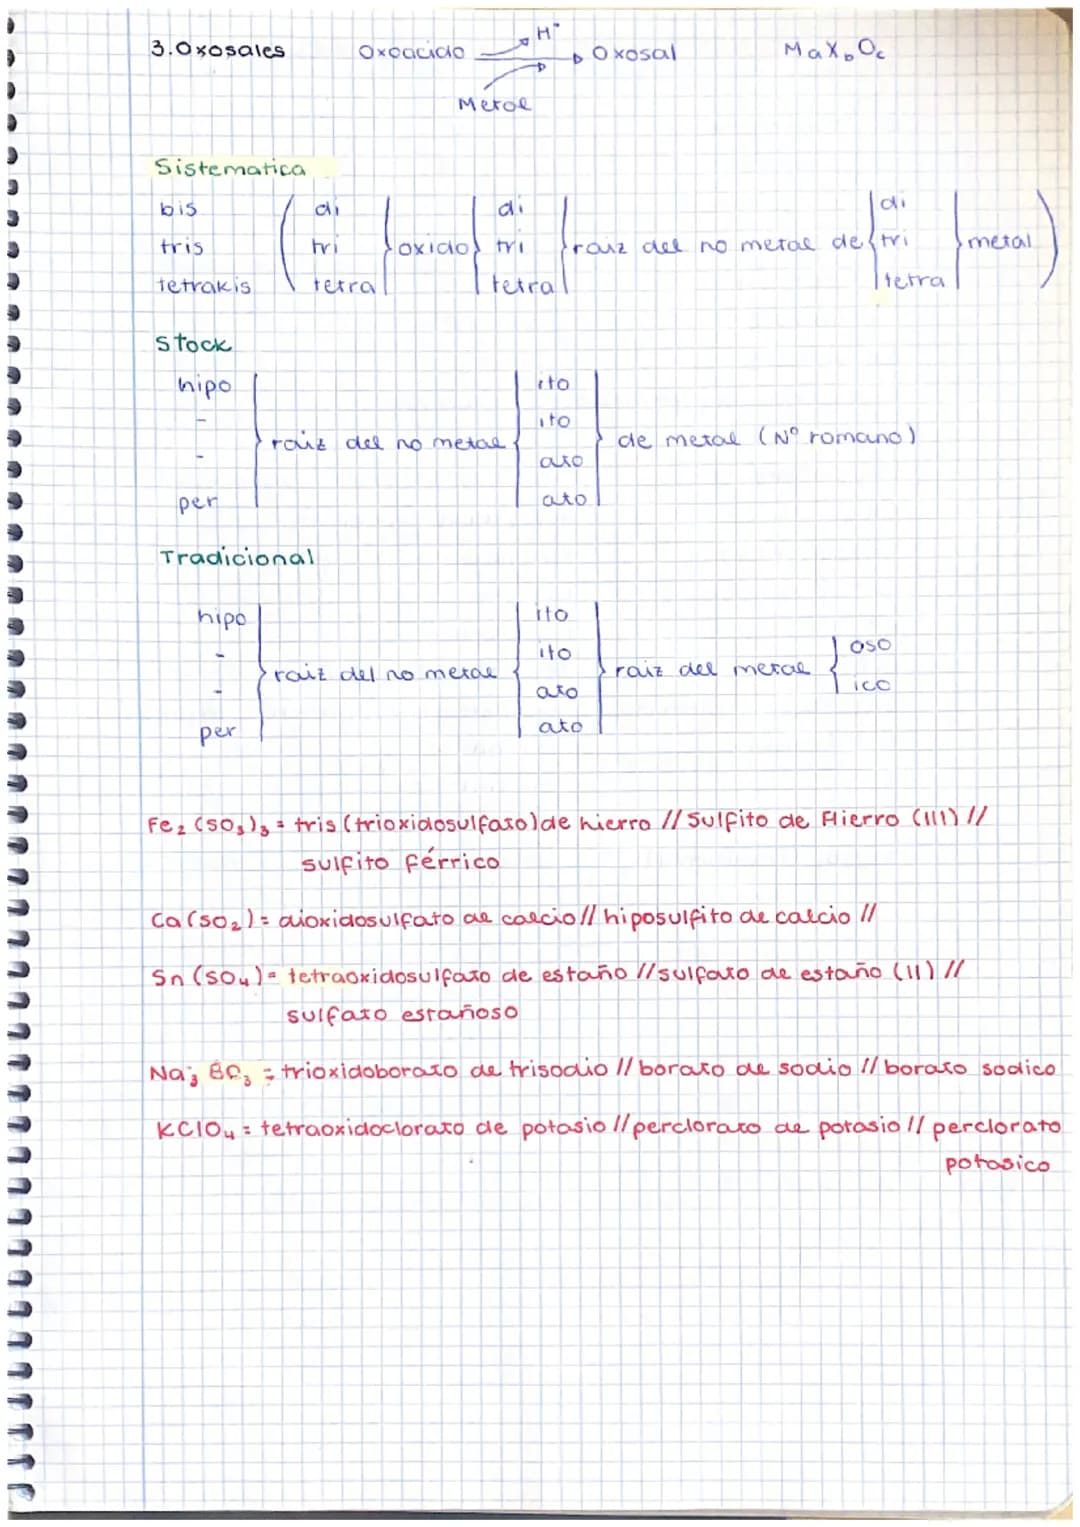 3. Oxosales Oxoacido H⁺ Oxosal MaXbOc
Metal
Sistematica
bis di di di
tris tri oxido tri raiz del no metal de tri metal
tetrakis tetra tetra tetra
Stock
hipo ito
- ito
raiz del no metal de metal (Nº romano)
- ato
per ato
Tradicional
hipo ito
- ito oso
raiz del no metal raiz del metal
- ato ico
per ato
Fe₂(SO₃)₃ = tris(trioxidosulfato)de hierro // Sulfito de Hierro (III) //
sulfito férrico
Ca(SO₂) = dioxidosulfato de calcio // hiposulfito de calcio //
Sn(SO₄) = tetraoxidosulfato de estaño // sulfato de estaño (II) //
sulfato estañoso
Na₃BO₃ = trioxidoborato de trisodio // borato de sodio // borato sodico
KClO₄ = tetraoxidoclorato de potasio // perclorato de potasio // perclorato
potasico